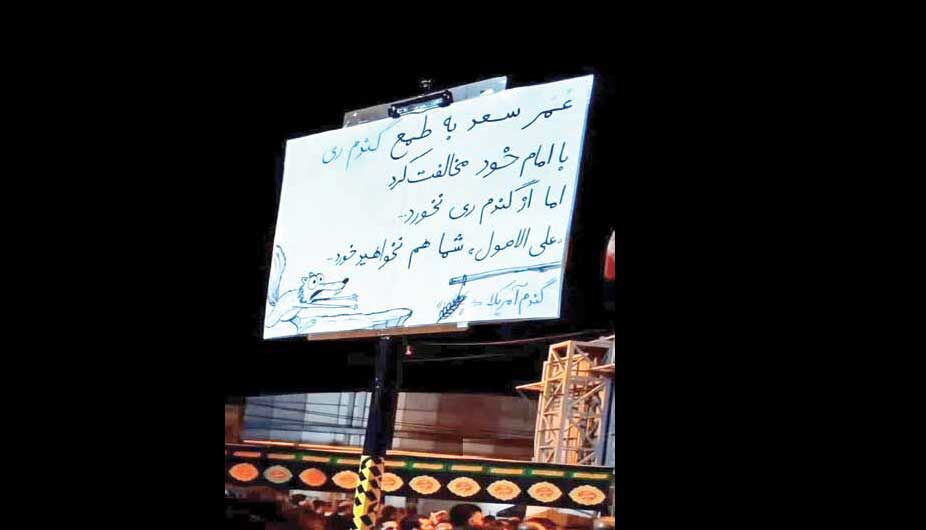 عُمَر سعد به طمع گندم ری
با امام خود مخالفت کرد
اما از گندم ری نخورد..
«علی الاصول» شما هم نخواهید خورد..
گندم آمریکا